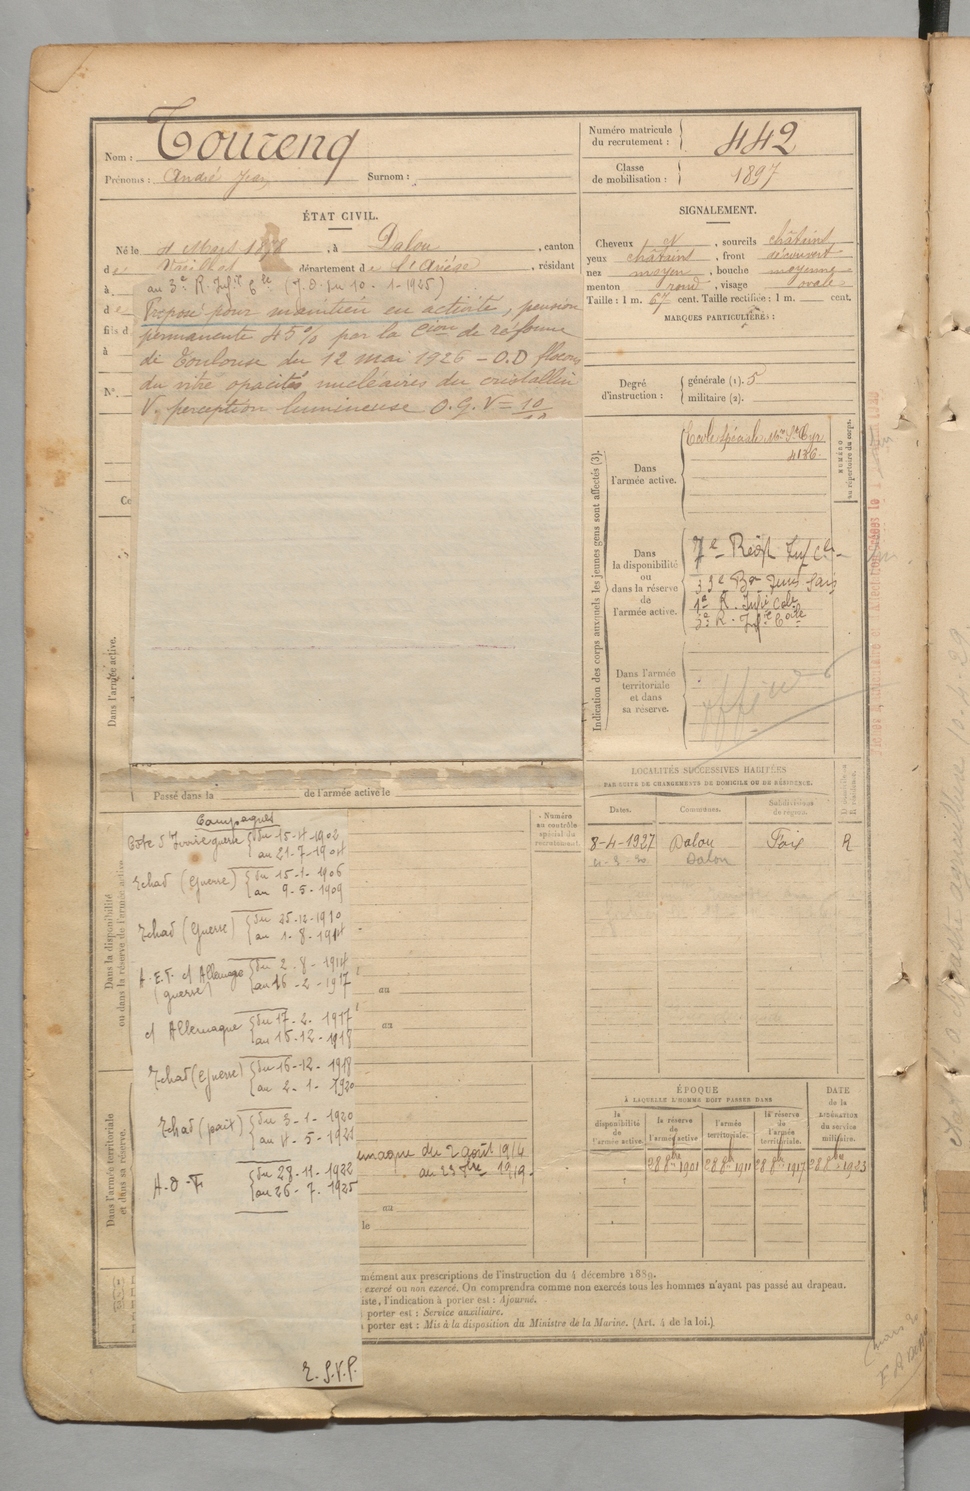 Nom : Tourenq
Prénoms : André Jean Surnom :
Numéro matricule du recrutement : 442
Classe de mobilisation : 1897
ÉTAT CIVIL.
Né le 4 Mars 1878, à Dalou, canton
de Varilhes département de l'Ariège, résidant
à
au 3e R. Inf.ie Cle (J.O. du 10-1-1925)
Proposé pour maintien en activité, pension
permanente 45% par la Cion de réforme
de Toulouse du 12 mai 1926 - O.D flocons
du vitré opacités nucléaires du cristallin
V. perception lumineuse O.G. V = 10/10
fils d
à
N°.
Ce
SIGNALEMENT.
Cheveux et, sourcils châtains
yeux châtains, front découvert
nez moyen, bouche moyenne
menton rond, visage ovale
Taille : 1 m. 67 cent. Taille rectifiée : 1 m. cent.
MARQUES PARTICULIÈRES :
Degré d'instruction : générale (1). 5
militaire (2).
Indication des corps auxquels les jeunes gens sont affectés (3).
NUMÉRO au répertoire du corps.
Dans l'armée active.
École Spéciale Mre St Cyr
4136.
Dans la disponibilité ou dans la réserve de l'armée active.
7e Régt Inf Cle
1er R. Infie Cole
3e R. Infie Cole
Dans l'armée territoriale et dans sa réserve.
Dans l'armée active.
Passé dans la de l'armée active le
LOCALITÉS SUCCESSIVES HABITÉES
PAR SUITE DE CHANGEMENTS DE DOMICILE OU DE RÉSIDENCE.
Dates. Communes. Subdivisions de région.
8-4-1927 Dalou Foix R
Dalou
Numéro au contrôle spécial du recrutement.
Dans la disponibilité ou dans la réserve de l'armée active
Campagnes
Côte d'Ivoire guerre du 15-4-1902
au 21-7-1904
Tchad (Guerre) du 15-1-1906
au 9-5-1909
Tchad (Guerre) du 25-12-1910
au 1-8-1914
A.E.F. et Allemagne (guerre) du 2-8-1914
au 16-2-1917
au
ct Allemagne du 17-2-1917
au 15-12-1918
au
Tchad (Guerre) du 16-12-1918
au 2-1-1920
Tchad (paix) du 3-1-1920
au 4-5-1921
A.O.F du 28-11-1922
au 26-7-1925
emagne du 2 août 1914
au 23 8bre 1919.
au
le
Dans l'armée territoriale et dans sa réserve.
ÉPOQUE
À LAQUELLE L'HOMME DOIT PASSER DANS
la disponibilité de l'armée active.
la réserve de l'armée active
l'armée territoriale.
la réserve de l'armée territoriale.
DATE de la LIBÉRATION du service militaire.
28 8bre 1901 28 8bre 1911 28 8bre 1917 28 8bre 1923
mément aux prescriptions de l'instruction du 4 décembre 1889.
exercé ou non exercé. On comprendra comme non exercés tous les hommes n'ayant pas passé au drapeau.
iste, l'indication à porter est : Ajourné.
porter est : Service auxiliaire.
porter est : Mis à la disposition du Ministre de la Marine. (Art. 4 de la loi.)
T.S.V.P.